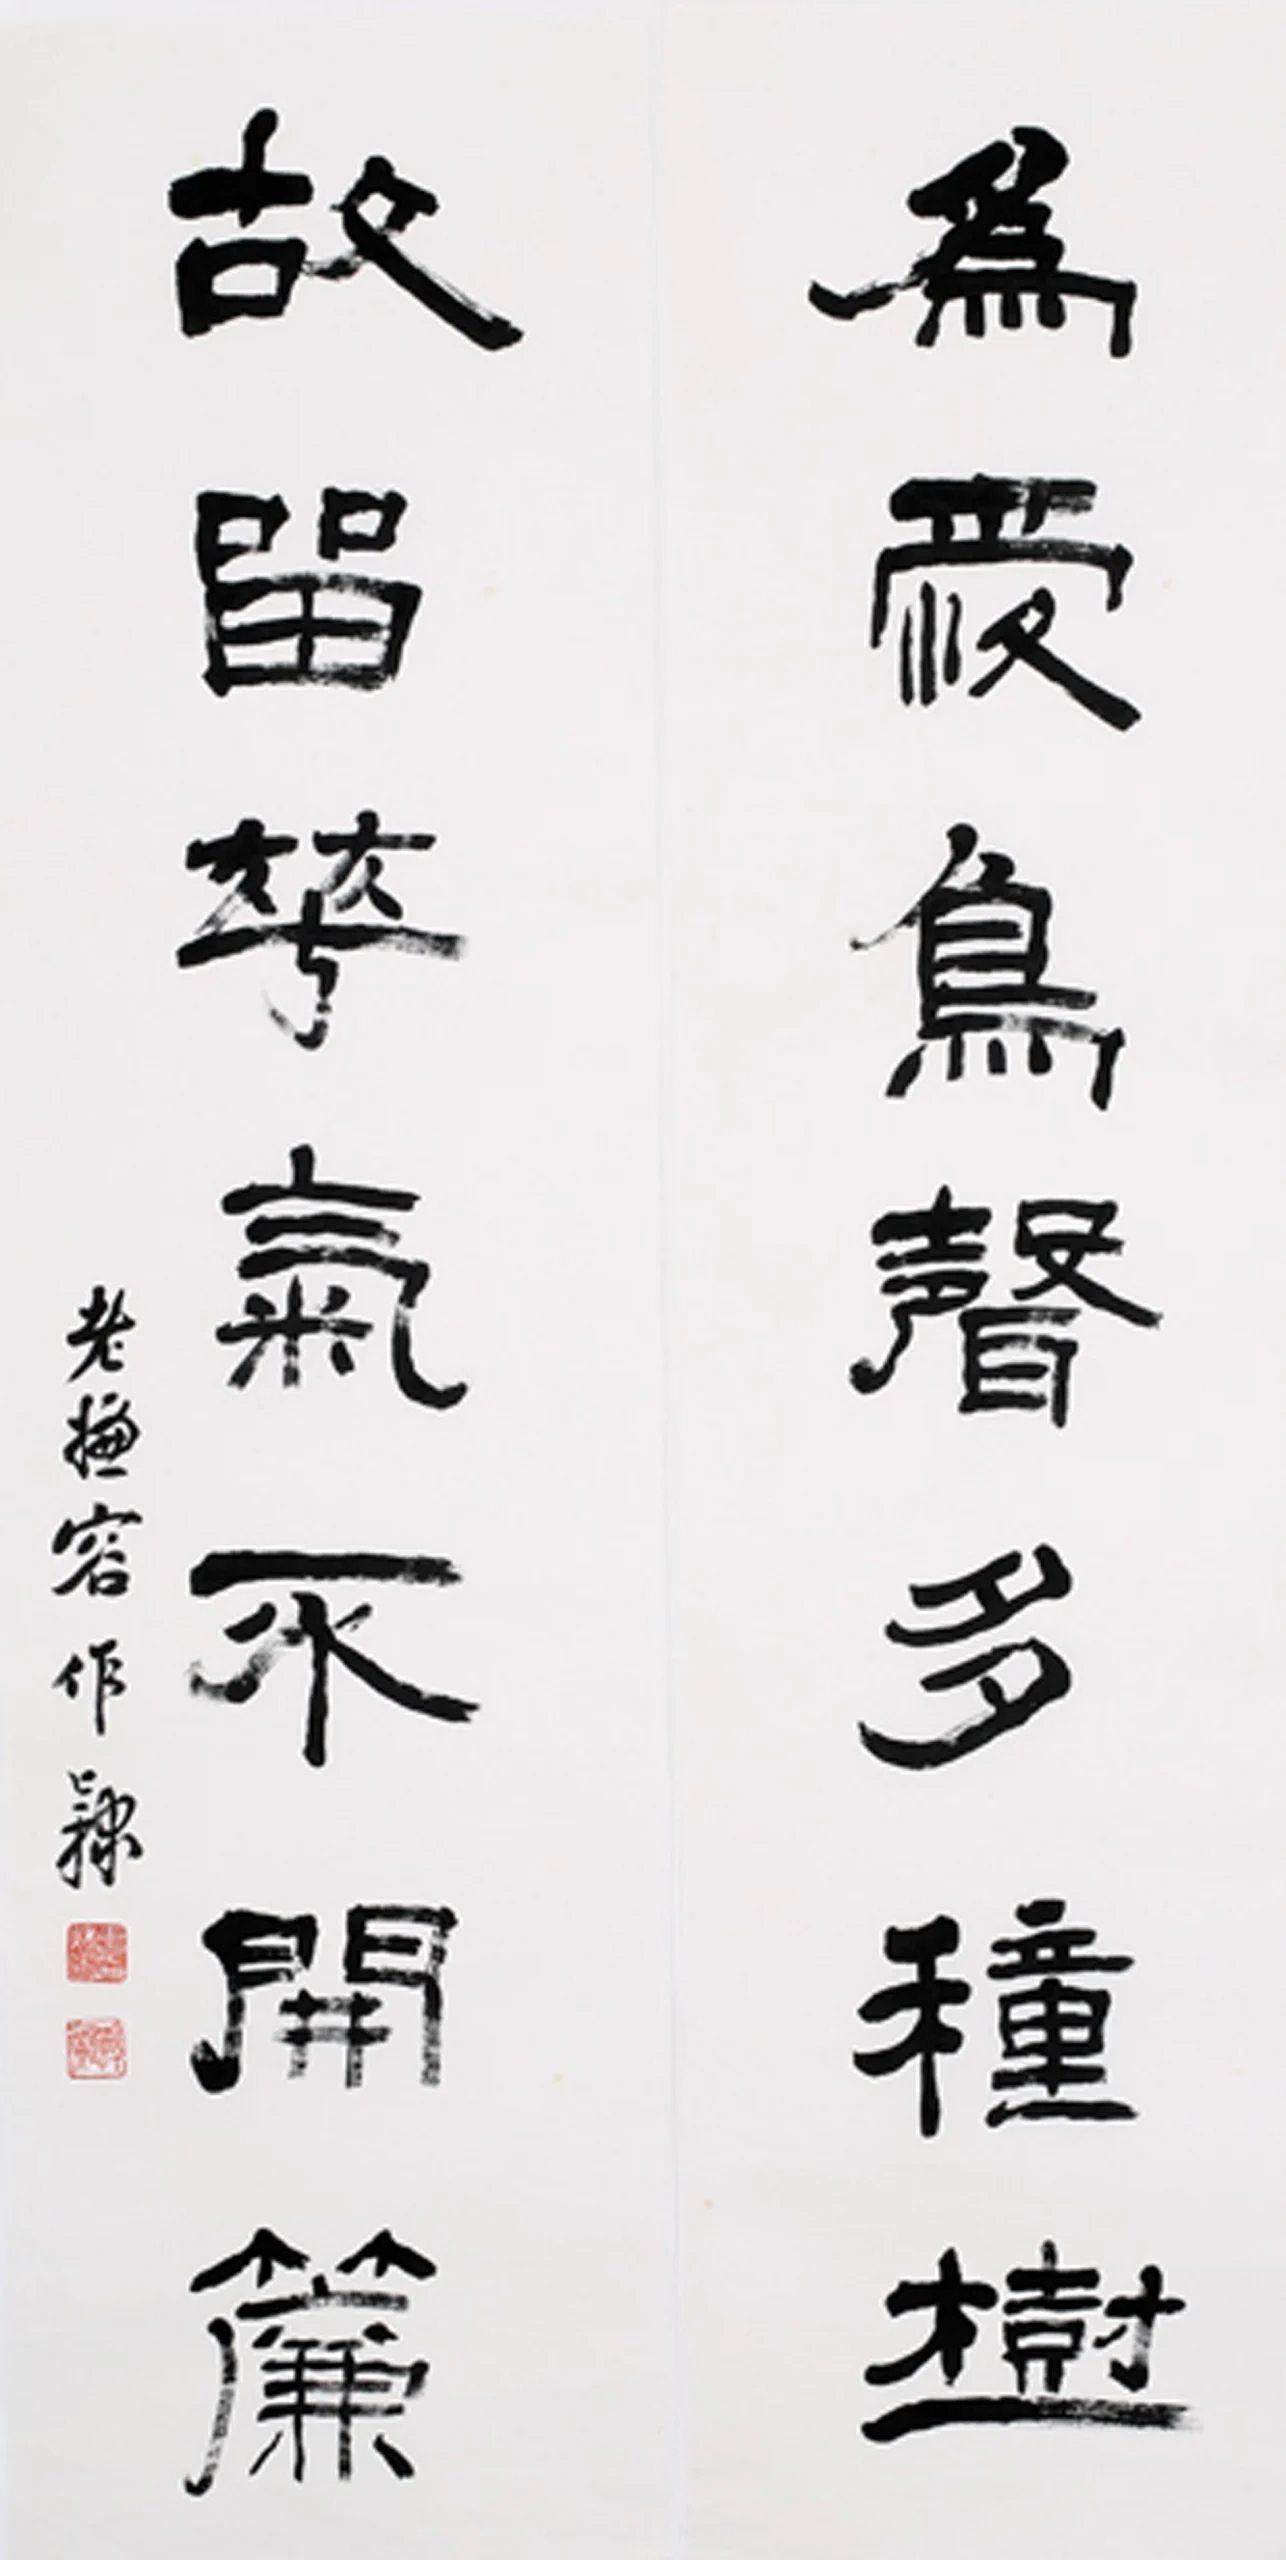 為愛鳥聲多種樹
故留華氣不開簾
老容作隸